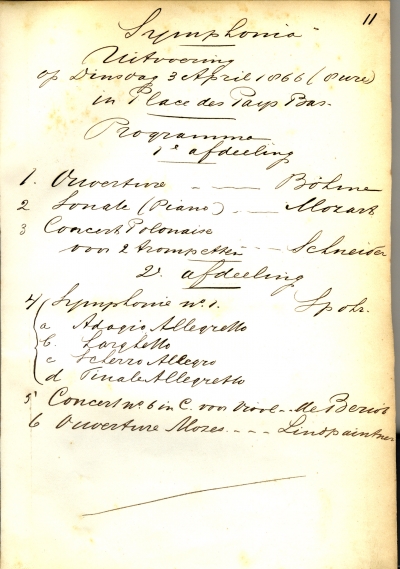 11
Symphonia
Uitvoering
op Dinsdag 3 April 1866 (8 ure)
in Place des Pays Bas.
Programma
1e afdeeling
1. Ouverture - - - Böhme
2 Sonate (Piano) - - Mozart
3 Concert Polonaise
voor 2 trompetten - - Schneider
2e afdeeling
4 Symphonie no. 1. Spohr.
a Adagio Allegretto
b. Larghetto
c Scherzo Allegro
d Finale Allegretto
5 Concert no. 6 in C. voor Viool - - de Beriot
6 Ouverture Mozes - - - Lindpaintner